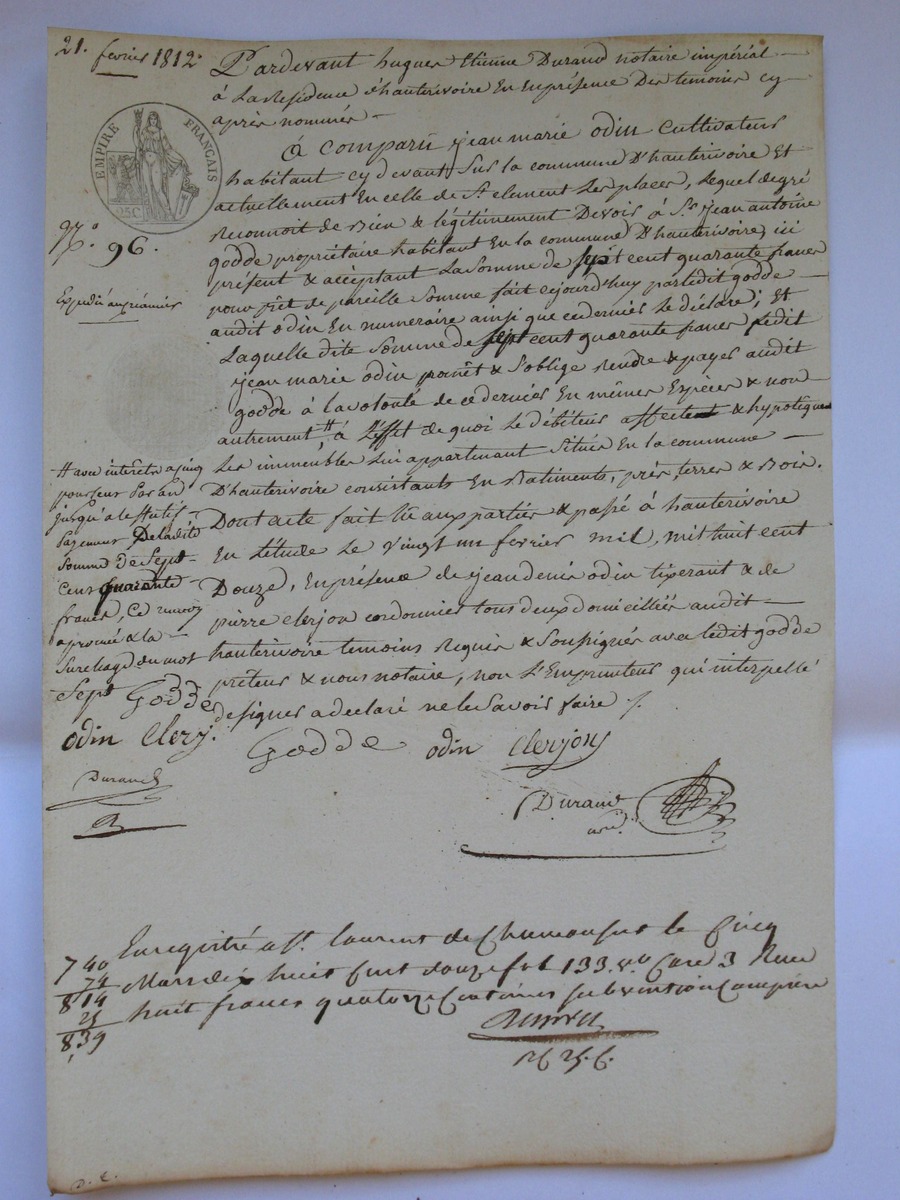 21. fevrier 1812.
Pardevant hugues Etienne Durand notaire impérial
à La Residence d'hauterivoire En En présence Des temoins cy
après nommés
A comparu jean marie odin cultivateur
habitant cy devant Sur la commune D'hauterivoire Et
actuellement En celle de St. clement Les places, Lequel de gré
reconnoit de Bien & légitimement Devoir à Sr. jean antoine
godde propriétaire habitant En la commune D'hauterivoire, ici
présent & acceptant La Somme de Sept cent quarante francs
pour prêt de pareille Somme fait cejourd'huy par ledit godde
audit odin En numeraire ainsi que ce dernier Le déclare; Et
Laquelle dite Somme de Sept cent quarante francs ledit
jean marie odin promêt & S'oblige rendre & payer audit
godde à la volonté de ce dernier En mêmes Espèces & non
autrement, # à L'effet de quoi Le débiteur affecte & hypotèque
Les immeubles Lui appartenant Situés En la commune
D'hauterivoire consistants En Batiments, près, terres & Bois.
Dont acte fait lû aux parties & passé à hauterivoire
En L'étude Le vingt un fevrier mil, mil huit cent
Douze, En présence de jean denis odin tixerant & de
pierre clerjon cordonnier tous deux domiciliés audit
hauterivoire temoins Requis & Soussignés avec ledit godde
prêteur & nous notaire, non L'Emprunteur qui interpellé
de signer a declaré ne le Savoir faire ./.
Godde odin Clerjon
Durand
EMPIRE FRANÇAIS
25C
No.
96.
Expédié au créancier
# avec intérêts a cinq
pour cent Par an
jusqu'à l'effectif
Payement De ladite
Somme de Sept
cent quarante
francs, Ce renvoy
aprouvé & la
Surchage du mot
Sept
Godde
odin Clerj.
Durand
Enregistré a St. laurent de Chamousset le Cinq
Mars dix huit cent douze fol 133 vo. Case 3 Recu
huit francs quatorze Centimes Subvention Comprise
7 40
74
8 14
25
8,39